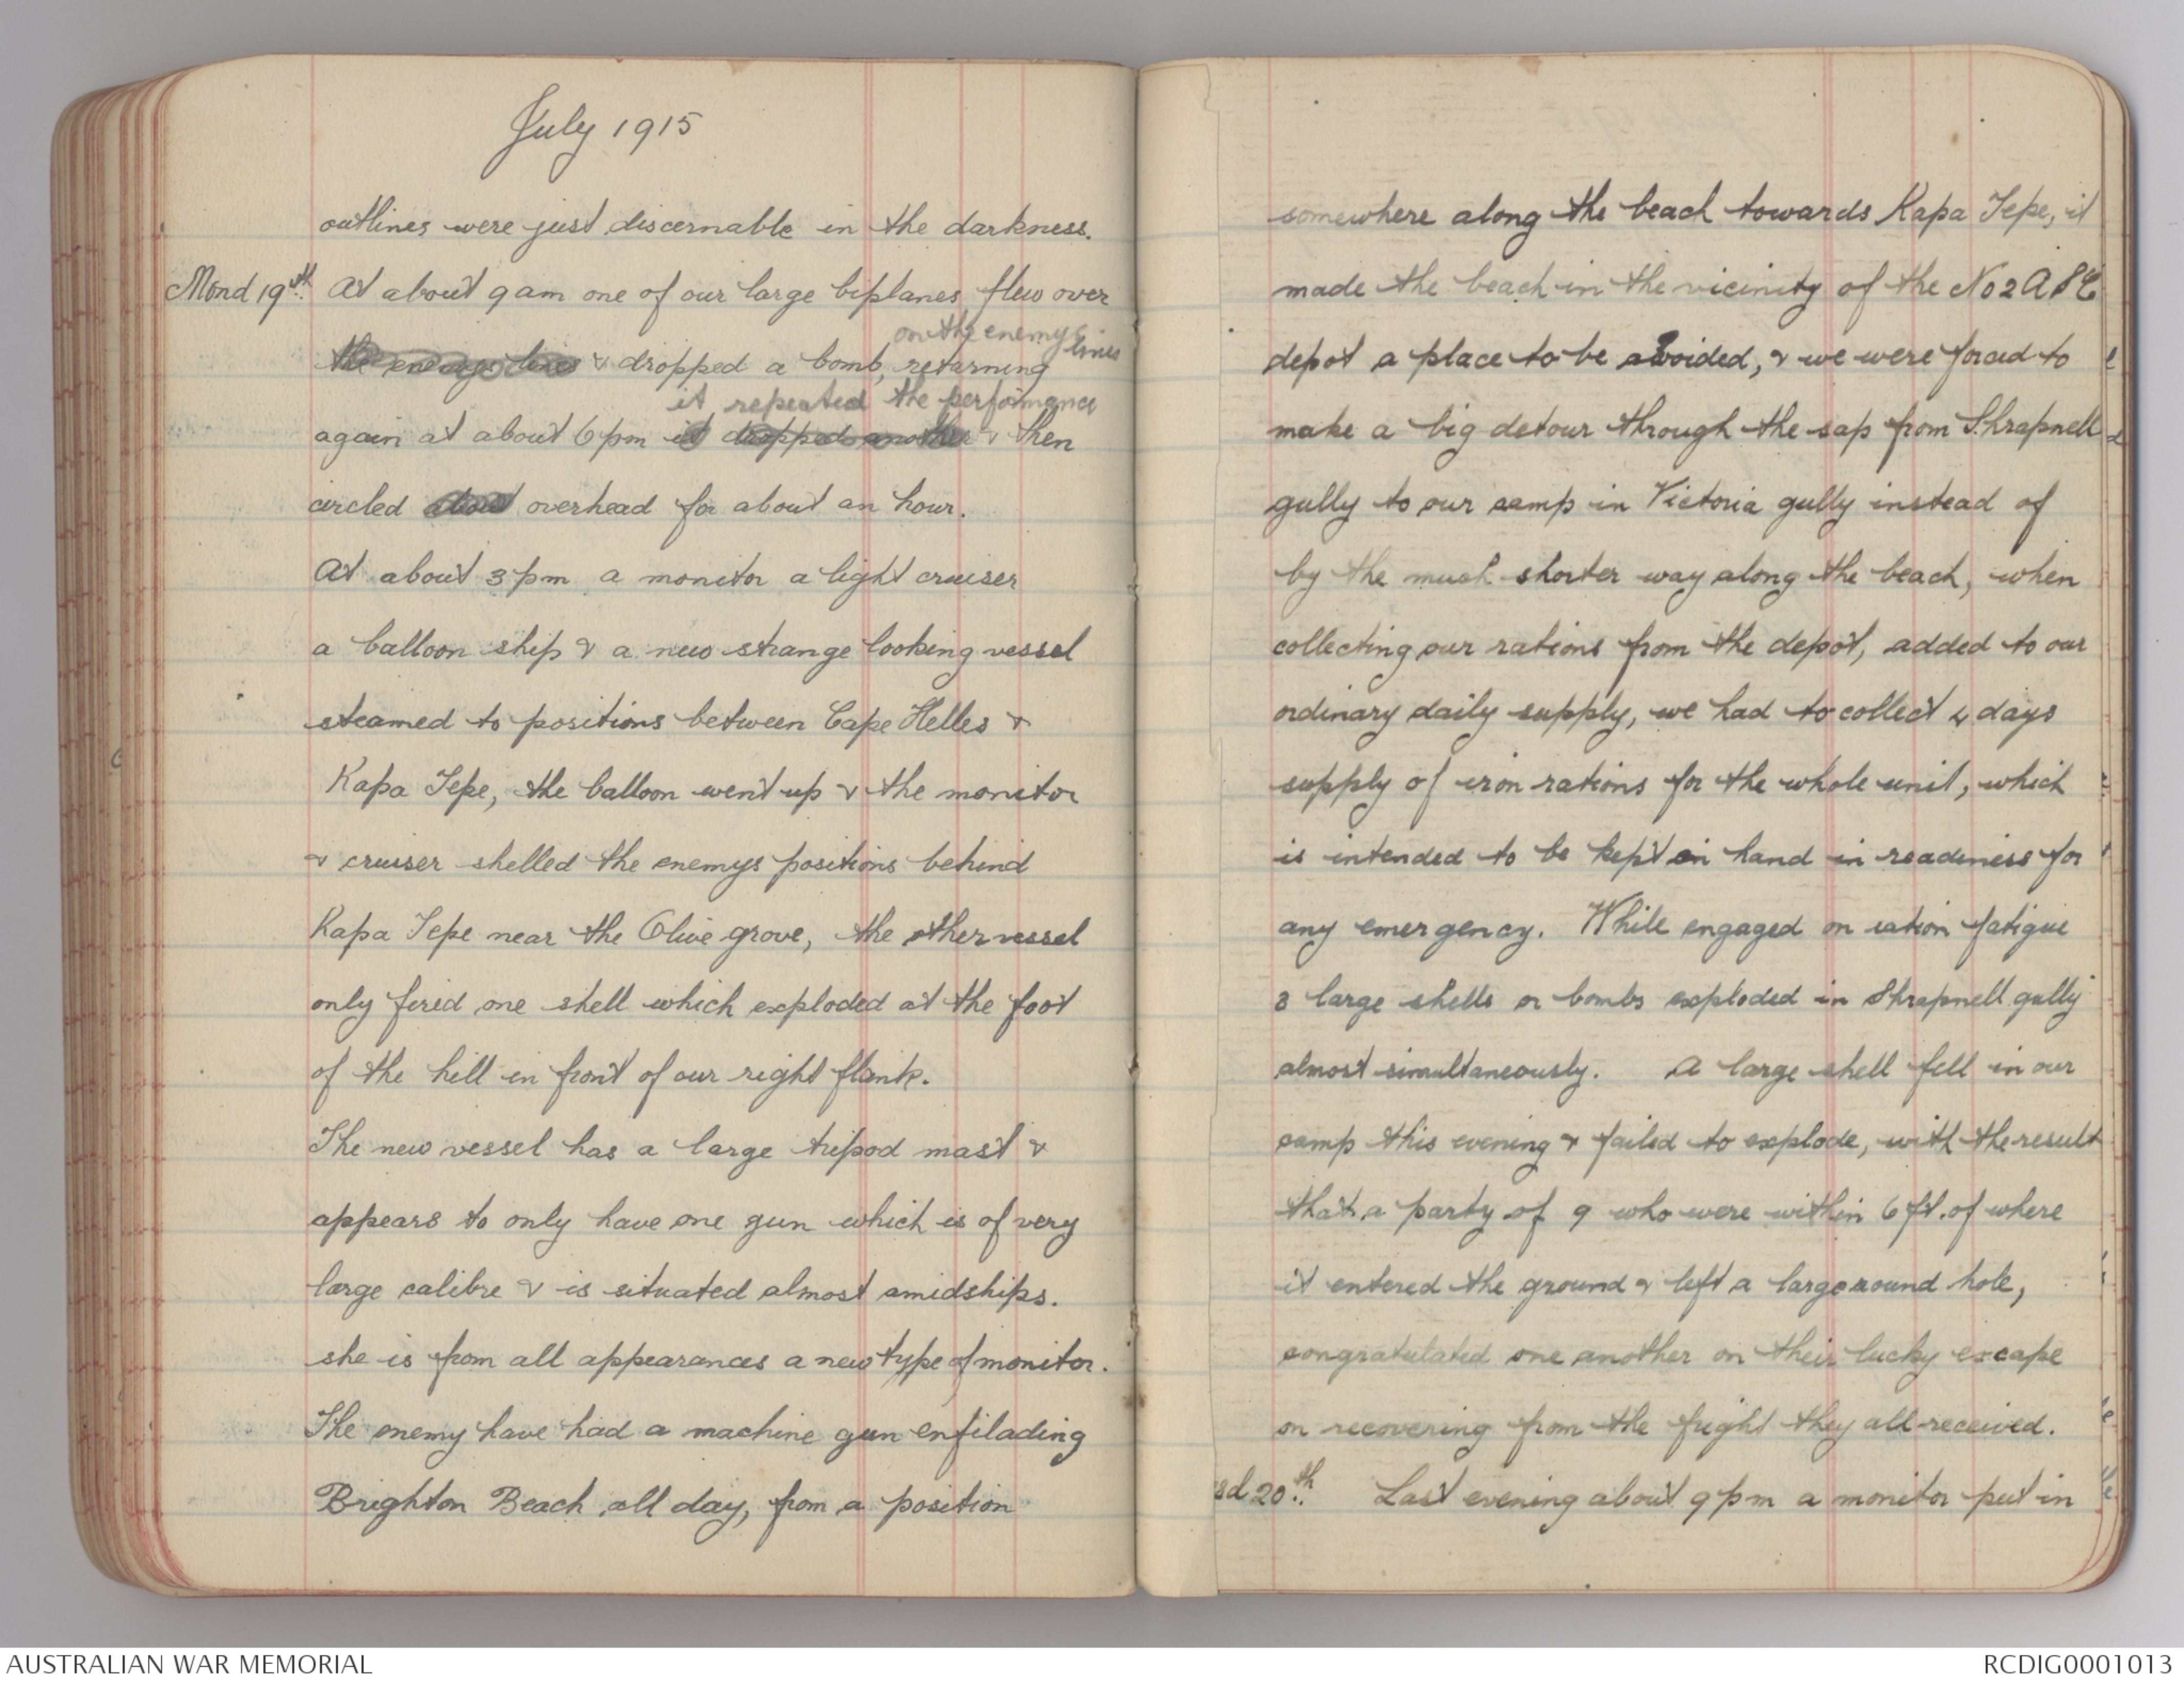 July 1915
outlines were just discernable in the darkness.
Mond 19th. At about 9 am one of our large biplanes flew over
on the enemys lines
the enemys lines & dropped a bomb, returning
it repeated the performance
again at about 6 pm it dropped another & then
circled about overhead for about an hour.
At about 3 pm a monitor a light cruiser
a balloon ship & a new strange looking vessel
steamed to positions between Cape Helles &
Kapa Tepe, the balloon went up & the monitor
& cruiser shelled the enemys positions behind
Kapa Tepe near the Olive grove, the other vessel
only fired one shell which exploded at the foot
of the hill in front of our right flank.
The new vessel has a large tripod mast &
appears to only have one gun which is of very
large calibre & is situated almost amidships.
she is from all appearances a new type of monitor.
The enemy have had a machine gun enfilading
Brighton Beach all day, from a position
somewhere along the beach towards Kapa Tepe, it
made the beach in the vicinity of the No 2 A S C
depot a place to be avoided, & we were forced to
make a big detour through the sap from Shrapnell
gully to our camp in Victoria gully instead of
by the much shorter way along the beach, when
collecting our rations from the depot, added to our
ordinary daily supply, we had to collect 4 days
supply of iron rations for the whole unit, which
is intended to be kept on hand in readiness for
any emergency. While engaged on ration fatigue
3 large shells or bombs exploded in Shrapnell gully
almost simultaneously. A large shell fell in our
camp this evening & failed to explode, with the result
that a party of 9 who were within 6 ft. of where
it entered the ground & left a large round hole,
congratulated one another on their lucky escape
on recovering from the fright they all received.
sd 20th. Last evening about 9 pm a monitor put in
AUSTRALIAN WAR MEMORIAL
RCDIG0001013